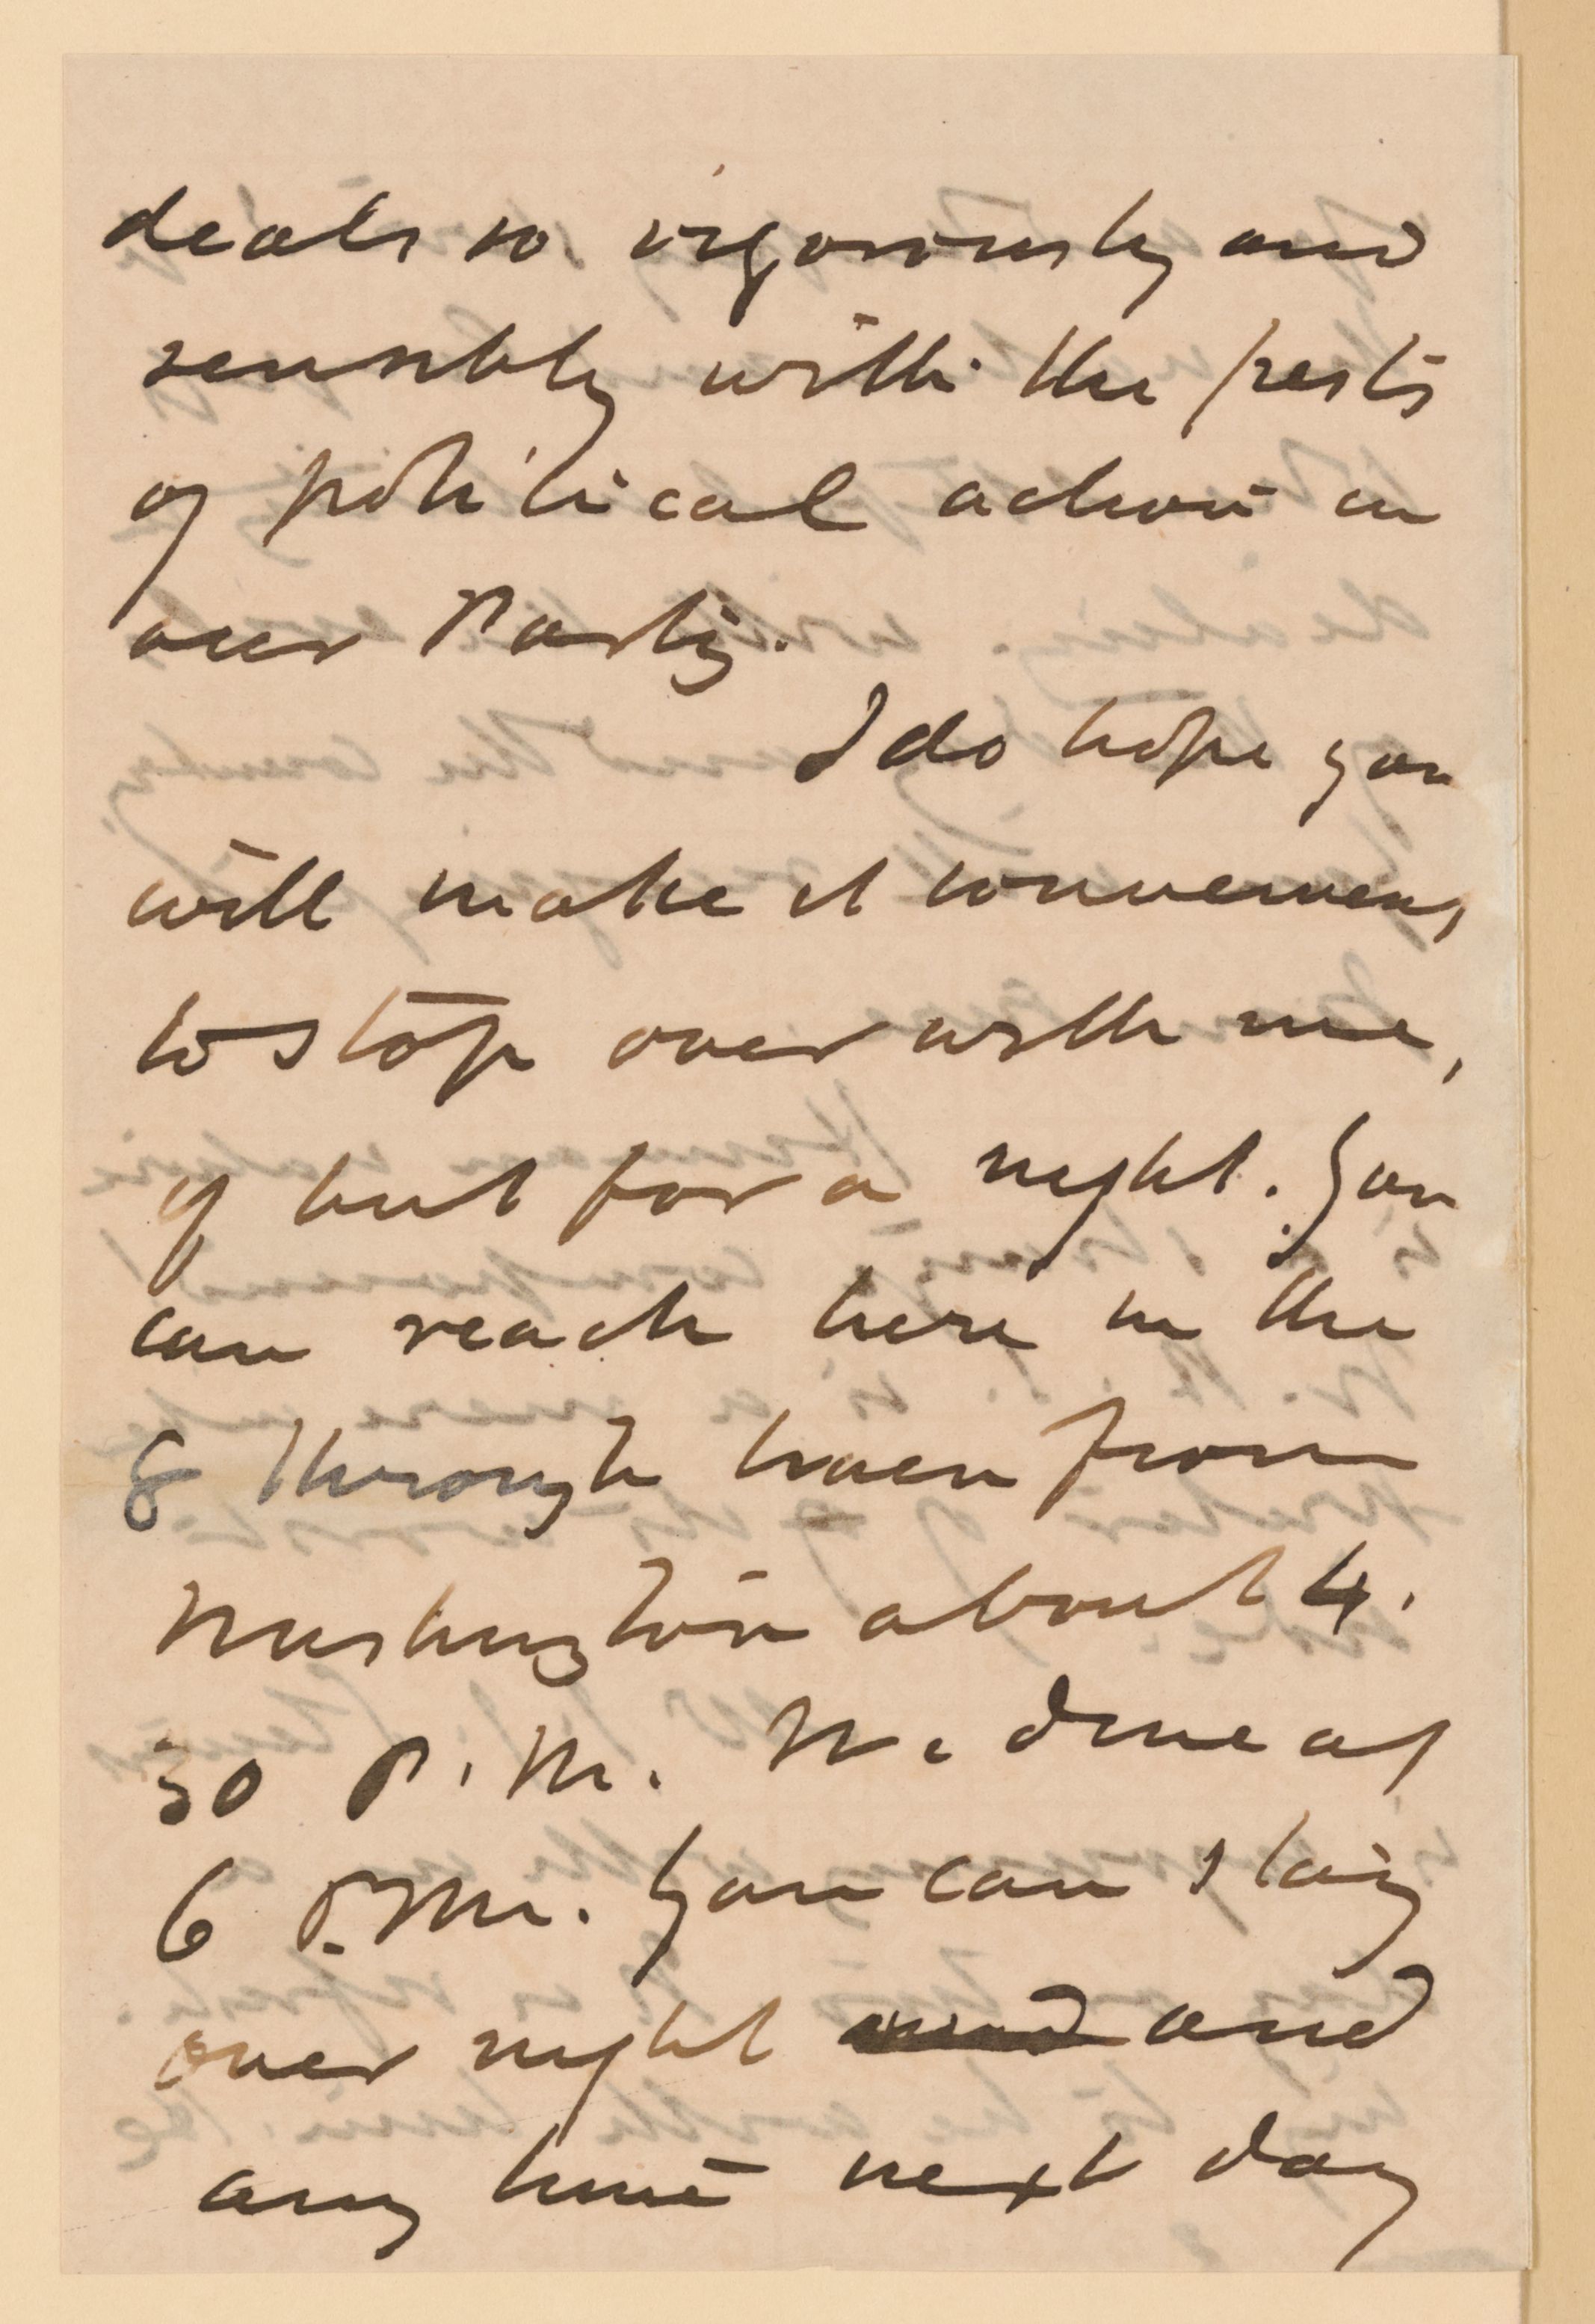 deals so vigorously and
sensibly with the pests
of political action in
our Party.
I do hope you
will make it convenient
to stop over with me,
if but for a night. You
can reach here in the
8 through train from
Washington about 4.
30 P.M. We dine at
6 P.M. You can stay
over night and
any time next day